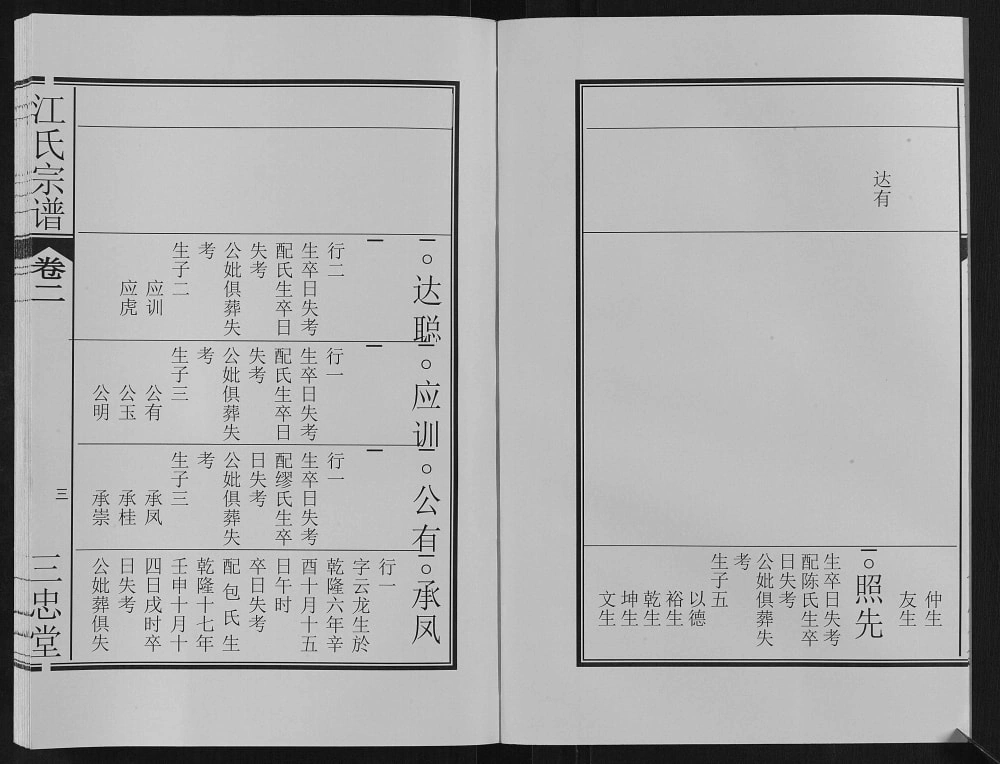 达有
仲生
友生
照先
生卒日失考
配陈氏生卒
日失考
公妣俱葬失
考
生子五
以德
裕生
乾生
坤生
文生
达聪
行二
生卒日失考
配氏生卒日
失考
公妣俱葬失
考
生子二
应训
应虎
应训
行一
生卒日失考
配氏生卒日
失考
公妣俱葬失
考
生子三
公有
公玉
公明
公有
行一
生卒日失考
配缪氏生卒
日失考
公妣俱葬失
考
生子三
承凤
承桂
承崇
承凤
行一
字云龙生於
乾隆六年辛
酉十月十五
日午时
卒日失考
配包氏生
乾隆十七年
壬申十月十
四日戌时卒
日失考
公妣葬俱失
江氏宗谱
卷二
三
三忠堂